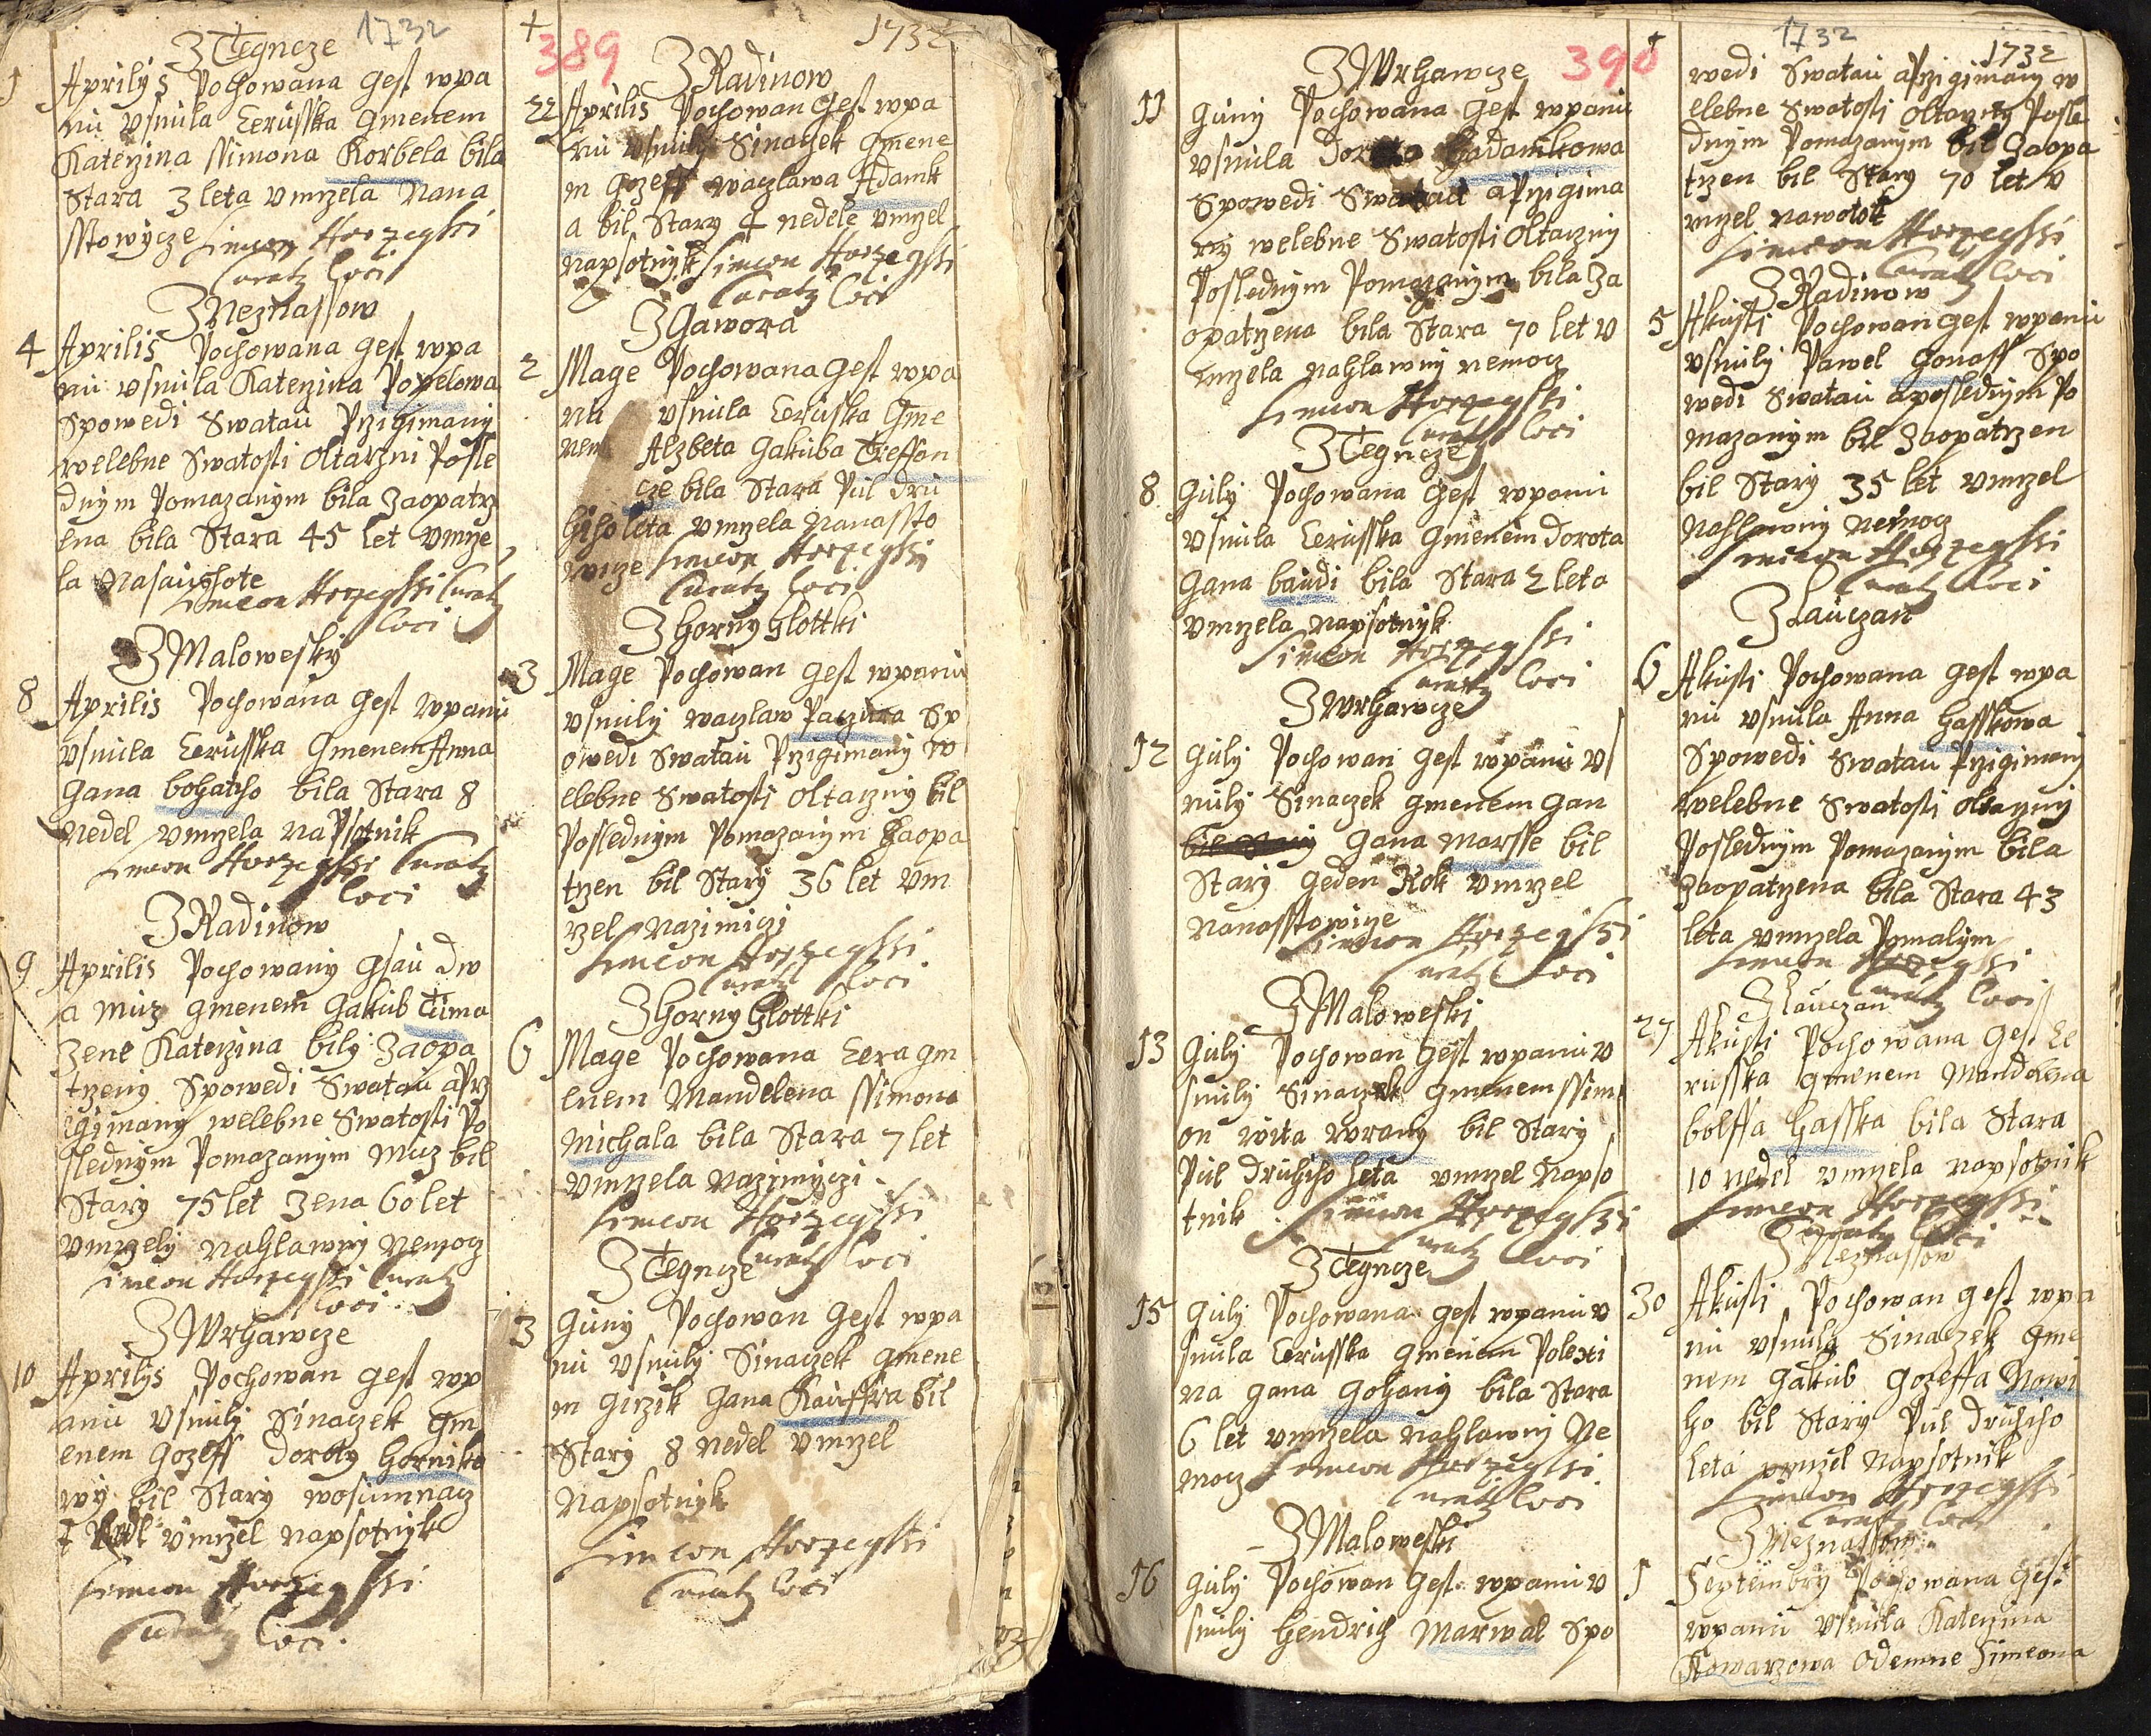 1732
Z Tegncze
1 Aprilys Pochowana gest wpa
nu vsnula Cerusska gmenem
Katerzina ssimona Korbela bila
Stara 3 leta vmrzela Nana
sstowycze Simeon Horzegssi
Curatg loci
Z Neznassow
4 Aprilis Pochowana gest wpa
nu vsnula Katerzina Popelowa
Spowedi Swatau Przigimany
welebne Swatosti Oltarzni Posle
dnym Pomazanym bila Zaopatrz
ena bila Stara 45 let vmrze
la Nasauchote
Simeon Horzegssi Curatg
loci
Z Malowesky
8 Aprilis Pochowana gest wpanu
vsnula Cerusska Gmenem Anna
Gana bohatcho bila Stara 8
Nedel vmrzela NaPsotnik
Simeon Horzegssi Curatg
loci
Z Radinow
9 Aprilis Pochowany gsau dw
a muz gmenem Gakub Tuma
zene Katerzina bily Zaopa
trzeny Spowedi Swatau aprz
igimany welebne Swatosti Po
slednym Pomazanym Muz bil
Stary 75 let Zena 60 let
vmrzely Nahlawny Nemocz
Simeon Horzegssi Curatg
loci
Z Wrhawcze
10 Aprilys Pochowan gest wp
anu vsnuly Sinaczek gm
enem Gozeff Doroty Horniko
wy bil Stary wosumnacz
t Nedl vmrzel napsotnyk
Simeon Horzegssi
Curatg loci
389
1732
Z Radinow
22 Aprilis Pochowan gest wpa
nu vsnuly Sinaczek gmene
m gozeff waczlawa Adamk
a bil Stary 4 nedele vmrzel
napsotnyk Simeon Horzegssi
Curatg loci
Z Gawora
2 Mage Pochowana gest wpa
nu vsnula Cerusska Gme
nem Alzbeta Gakuba Treffon
cze bila Stara Pul dru
hiho leta vmrzela Nanassto
wicze Simeon Horzegssi
Curatg loci
Z Horny hlottki
3 Mage Pochowan gest wpanu
vsnuly waczlaw Paczura Sp
owedi Swatau Przigimany w
elebne Swatosti Oltarzny bil
Poslednym Pomazanym Zaopa
trzen bil Stary 36 let vm
rzel Nazimiczi
Simeon Horzegssi
Curatg loci
Z Horny Hlottki
6 Mage Pochowana Cera gm
enem Mandelena ssimona
Michala bila Stara 7 let
vmrzela Nazimyczi
Simeon Horzegssi
Curatg loci
Z Tegncze
3 Guny Pochowan gest wpa
nu vsnuly Sinaczek gmene
m girzik Gana Kauffra bil
Stary 8 Nedel vmrzel
Napsotnyk
Simeon Horzegssi
Curatg loci
390
Z Wrhawcze
11 Guny Pochowana gest wpanu
vsnula Dorota Hadamkowa
Spowedi Swatau aPrzigima
ny welebne Swatosti Oltarzny
Poslednym Pomazanym bila Za
opatrzena bila Stara 70 let v
mrzela nahlawny nemocz
Simeon Horzegssi
Curatg loci
Z Tegncze
8 Guly Pochowana gest wpanu
vsnula Cerusska gmenem Dorota
Gana baudi bila Stara 2 leta
vmrzela napsotnyk
Simeon Horzegssi
Curatg loci
Z Wrhawcze
12 Guly Pochowan gest wpanu vs
nuly Sinaczek gmenem Gan
bil Stary Gana Marsse bil
Stary geden Rok vmrzel
Nanasstowicze
Simeon Horzegssi
Curatg loci
Z Maloweski
13 Guly Pochowan gest wpanu v
snuly Sinaczek gmenem ssim
on wita wrany bil Stary
Pul druhiho leta vmrzel Napso
tnik Simeon Horzegssi
Curatg loci
Z Tegncze
15 Guly Pochowana gest wpanu v
snula Cerusska gmenem Polexi
na gana gohany bila Stara
6 let vmrzela nahlawny Ne
mocz Simeon Horzegssi
Curatg loci
Z Maloweski
16 Guly Pochowan gest wpanu v
snuly Hendrich Marwal Spo
1732
1732
wedi Swatau aprzigimany w
elebne Swatosti Oltarzny Posle
dnym Pomazanym bil Zaopa
trzen bil Stary 70 let v
mrzel nawotok
Simeon Horzegssi
Curatg loci
Z Radinow
5 Akusti Pochowan gest wpanu
vsnuly Pawel Gonass Spo
wedi Swatau aposlednym Po
mazanym bil Zaopatrzen
bil Stary 35 let vmrzel
Nahlawny nemocz
Simeon Horzegssi
Curatg loci
Z Lauczan
6 Akusti Pochowana gest wpa
nu vsnula Anna Hasskowa
Spowedi Swatau Przigimany
welebne Swatosti Oltarzny
Poslednym Pomazanym bila
Zaopatrzena bila Stara 43
leta vmrzela Pomalym
Simeon Horzegssi
Curatg loci
Z Lauczan
27 Akusti Pochowana gest Ce
russka gmenem Mandelena
bolffa Hasska bila Stara
10 nedel vmrzela napsotnik
Simeon Horzegssi
Curatg loci
Z Neznassow
30 Akusti Pochowan gest wpa
nu vsnuly Sinaczek gme
nem Gakub Gozeffa Nowi
ho bil Stary Pul druhiho
leta vmrzel Napsotnik
Simeon Horzegssi
Curatg loci
Z Neznassow
1 Septembry Pochowana gest
wpanu vsnula Katerzina
Kowarzowa Odemne Simeona